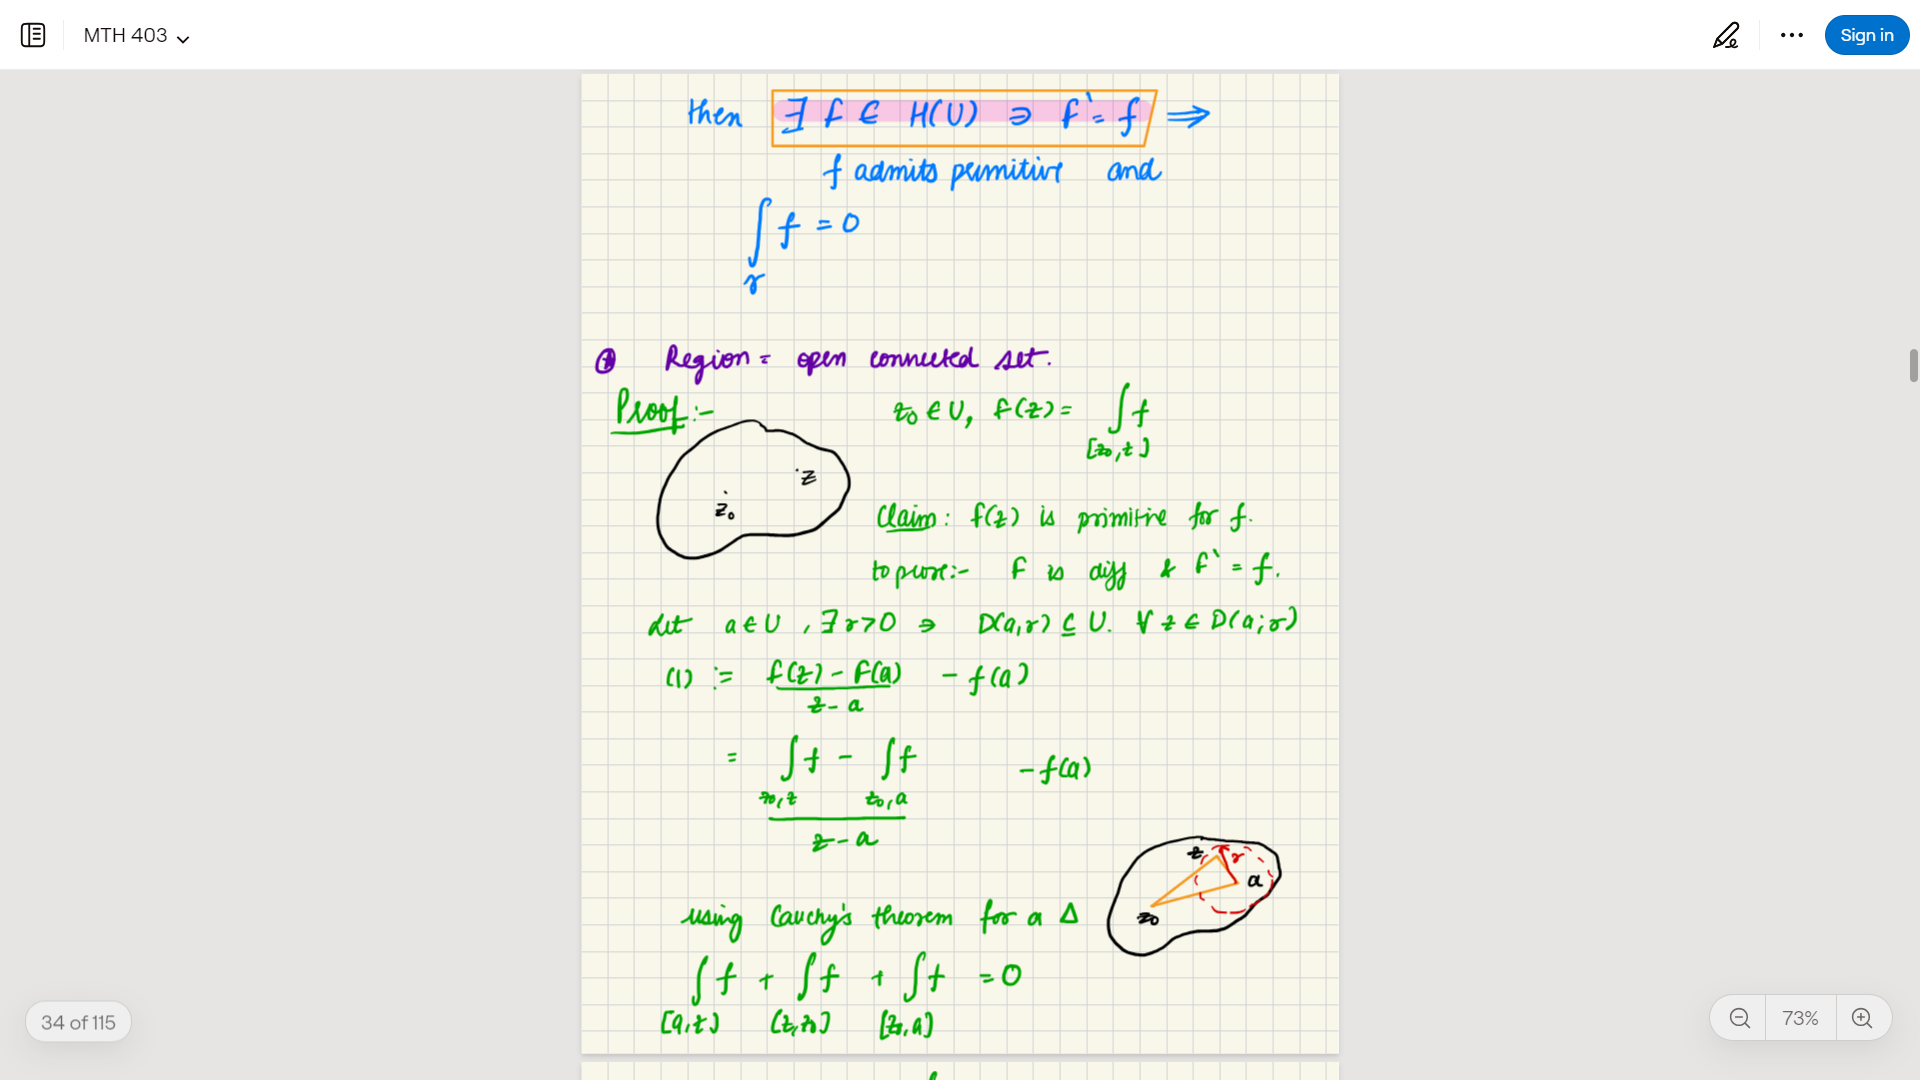 MTH 403
Sign in
then ∃ F ∈ H(U) ∋ F' = f ⇒
f admits primitive and
∫ f = 0
γ
⊕ Region = open connected set.
Proof :-
z₀ ∈ U, F(z) = ∫ f
[z₀, z]
z
z₀
Claim : F(z) is primitive for f.
to prove :- F is diff & F' = f.
Let a ∈ U , ∃ r > 0 ∋ D(a,r) ⊆ U. ∀ z ∈ D(a;r)
(1) := F(z) - F(a) - f(a)
z - a
= ∫ f - ∫ f - f(a)
z₀, z z₀, a
z - a
z r
a
z₀
using Cauchy's theorem for a Δ
∫ f + ∫ f + ∫ f = 0
[a, z] [z, z₀] [z₀, a]
34 of 115
73%